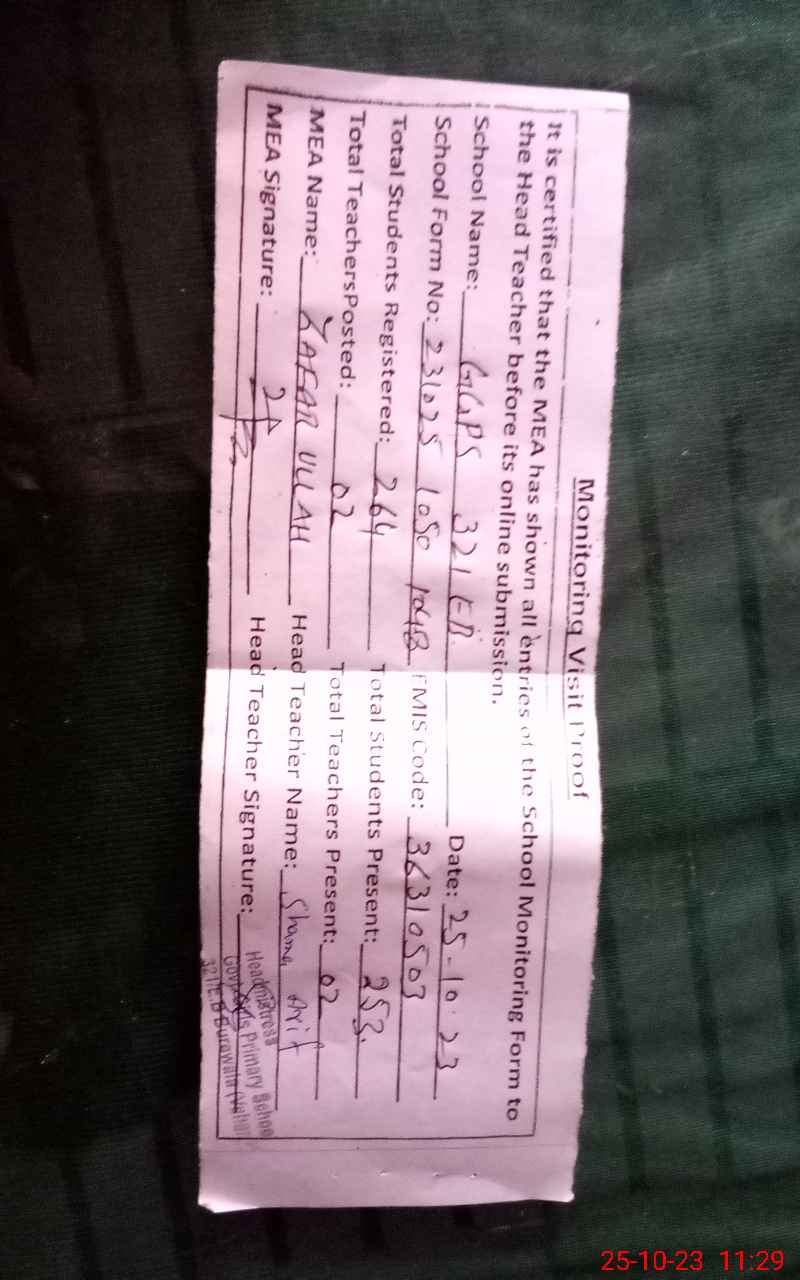 Monitoring Visit Proof
It is certified that the MEA has shown all entries of the School Monitoring Form to
the Head Teacher before its online submission.
School Name: GGPS 321 EB. Date: 25-10-23
School Form No: 231025 1050 1048 EMIS Code: 36310503
Total Students Registered: 264 Total Students Present: 253.
Total TeachersPosted: 02 Total Teachers Present: 02
MEA Name: ZAFAR ULLAH Head Teacher Name: Arif
MEA Signature: Head Teacher Signature:
Headmistress
Govt. Girls Primary School
321/E.B Burewala (Vehari
25-10-23 11:29